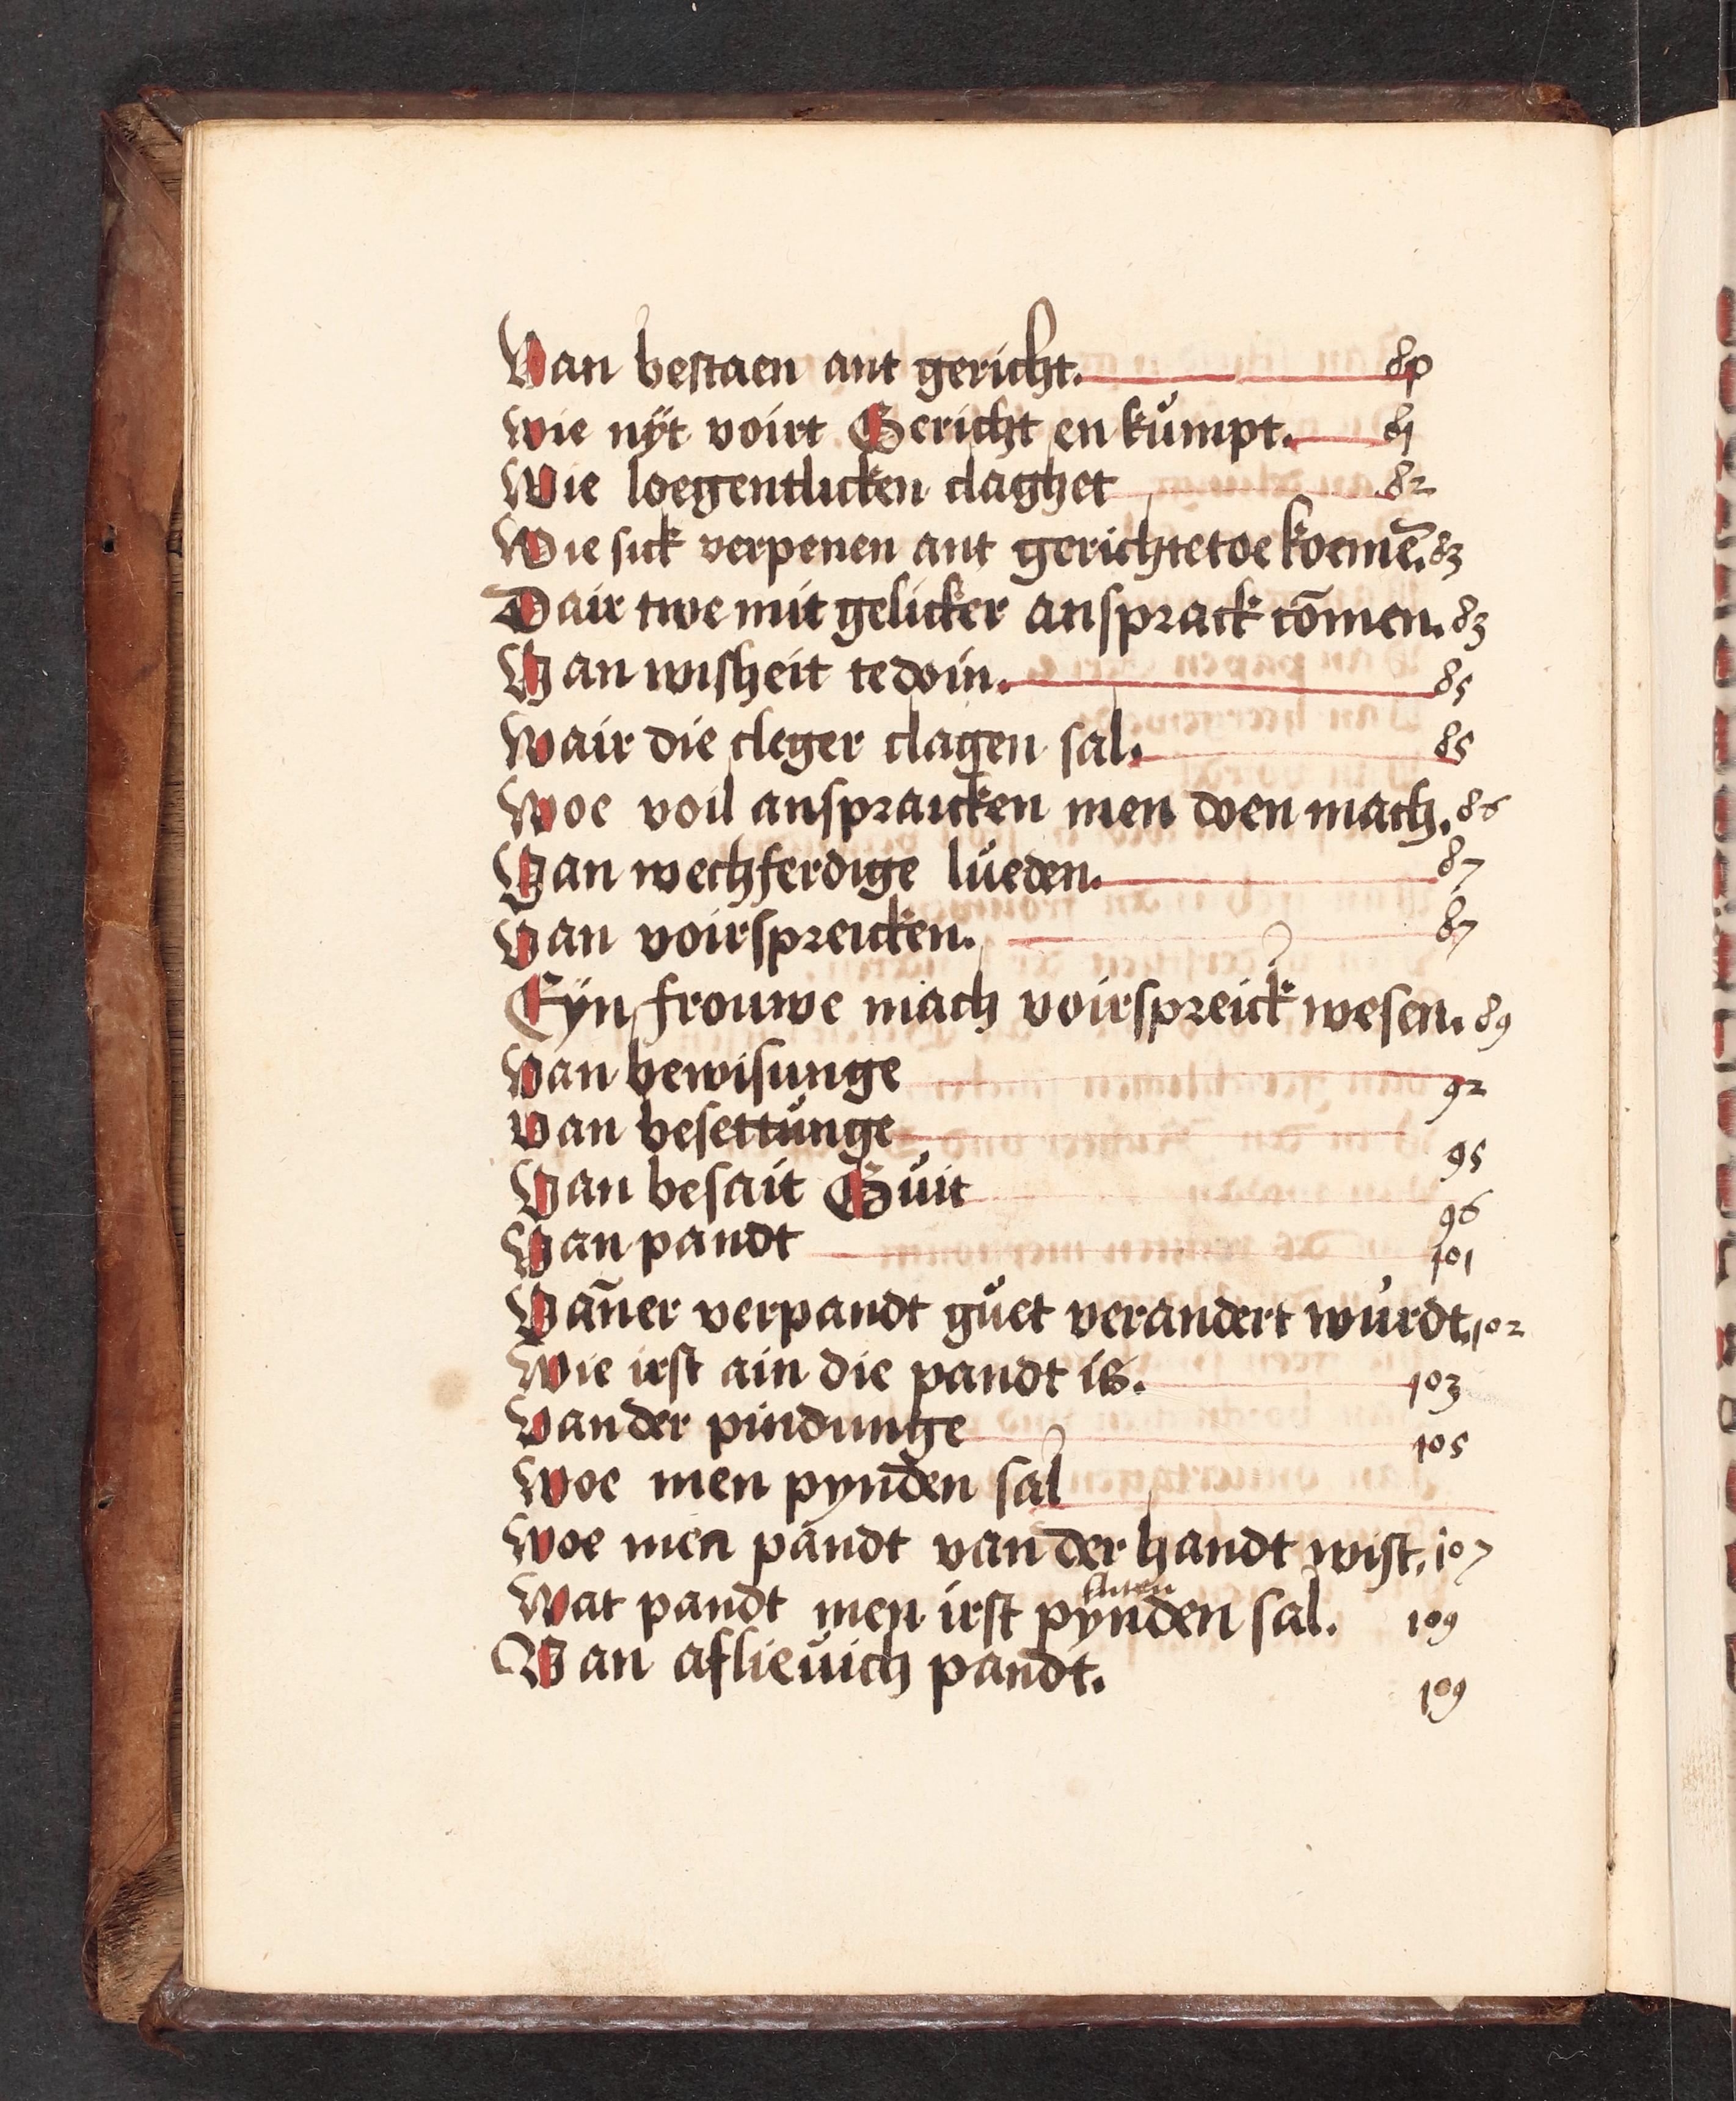 Van bestaen ant gericht. 80
Wie nÿt voirt Gericht en kůmpt. 81
Wie loegentlicken claghet 82
Wie sick verpenen ant gerichte toe koemē. 83
Dair twe mit gelicker ansprack cōmen. 83
Van wisheit te doin. 85
Wair die cleger clagen sal. 85
Woe voil anspraicken men doen mach. 86
Van wechferdige lůeden. 87
Van voirspreicken. 87
Eÿn frouwe mach voirspreick wesen. 89
Van bewisunge 92
Van besettůnge 95
Van besait Gůit 96
Van pandt 101
Wañer verpandt gůet verandert wůrdt. 102
Wie irst ain die pandt is. 103
Van der pindunge 105
Woe men pynden sal
Woe men pandt van der handt wist. 107
Wat pandt men irst pynden sal. 109
Van aflieůich pandt. 109